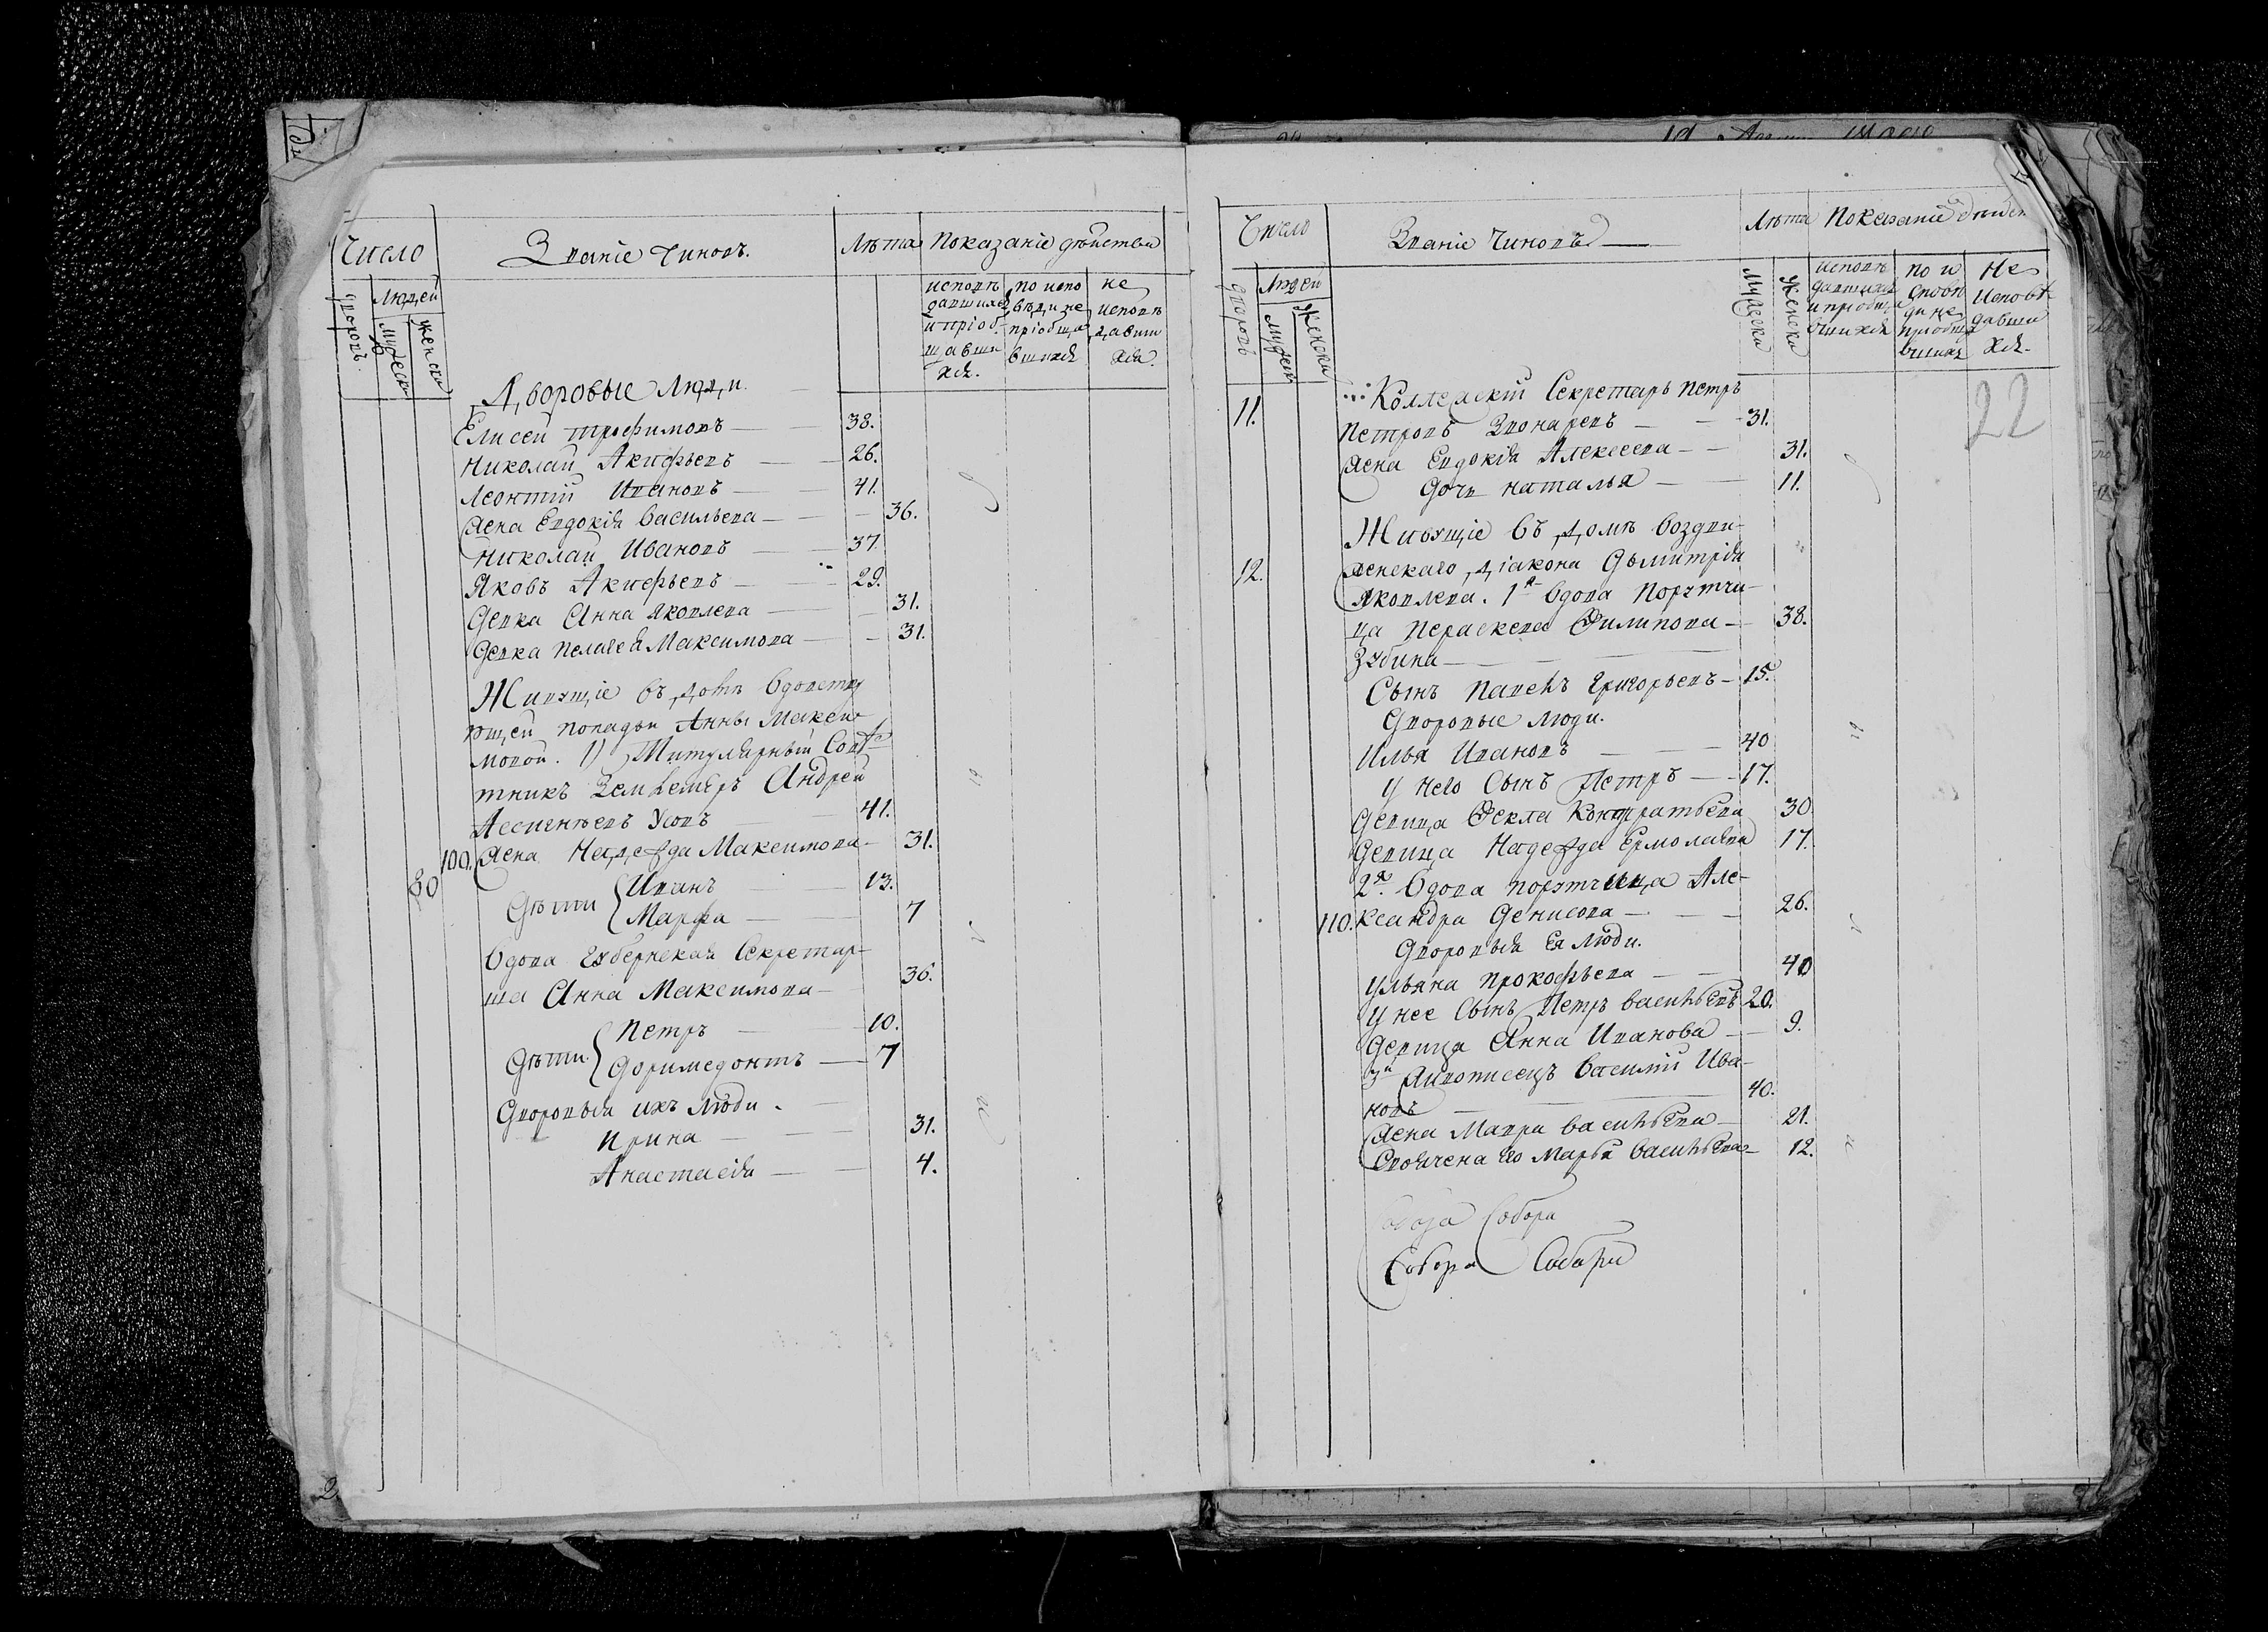 Число
Званіе чиновъ.
Лѣта
Показаніе дѣйства
дворовъ.
Людей
мужеск
женски
исповѣ
давших
и пріоб
щавши
хся.
по испо
вѣд, и не
пріобща
вшихся
не
исповѣ
давши
хся.
Дворовые Люди.
Елисей трофимовъ 38.
Николай Акифьевъ 26.
Леонтій Ивановъ 41.
жена Евдокія васильева 36.
Николай Ивановъ 37.
Яковъ Акифьевъ 29.
девка Анна яковлева 31.
девка пелагея Максимова 31.
Живущіе въ домѣ вдовству
ющей попадьи Анны Макси
мовой. 1) Титулярный Совѣ
тникъ Землемѣръ Андрей
Усовъ 41.
100. жена Надежда Максимова 31.
80
Дѣти
Иванъ 13.
Марфа 7
вдова губернская Секретар-
ша Анна Максимова 36.
Дѣти.
Петръ 10.
Доримедонтъ 7
Дворовыя ихъ люди.
Ирина 31.
Анастасія 4.
2
Число
Званіе Чиновъ
Лѣта
Показаніе дѣйст
дворовъ
Людей
мужеск
женски
мужеска
женска
исповѣ
давшихся
и пріобща
вшихся
по и
споѣ
ди не
пріобща
вшихся
Не
исповѣ
давши
хся.
22
11. Коллежскій Секретарь Петръ
Петровъ Звонаревъ 31.
жена Евдокія Алексеева 31.
дочь наталья 11.
Живущіе въ домѣ воздви-
12. женскаго діакона Дьмитрія
яковлева. 1я вдова Порутчи-
ца Параскева Филипова 38.
Зубина
Сынъ Павелъ григорьевъ 15.
Дворовые люди.
Илья Ивановъ 40
у него Сынъ Петръ 17.
Девица Фекла Кондратьева 30
Девица Надежда Ермолаева 17.
2я вдова порутчица Але-
110. ксандра Денисова 26.
Дворовыя Ея люди.
Ульяна Прокофьева 40
у нее Сынъ Петръ васильевъ 20.
Девица Анна Иванова 9.
3й Живописецъ Василій Ива-
новъ 40.
жена Мавра васильева 21.
Своячена его Марья васильева 12.
Собора
Собора Собори